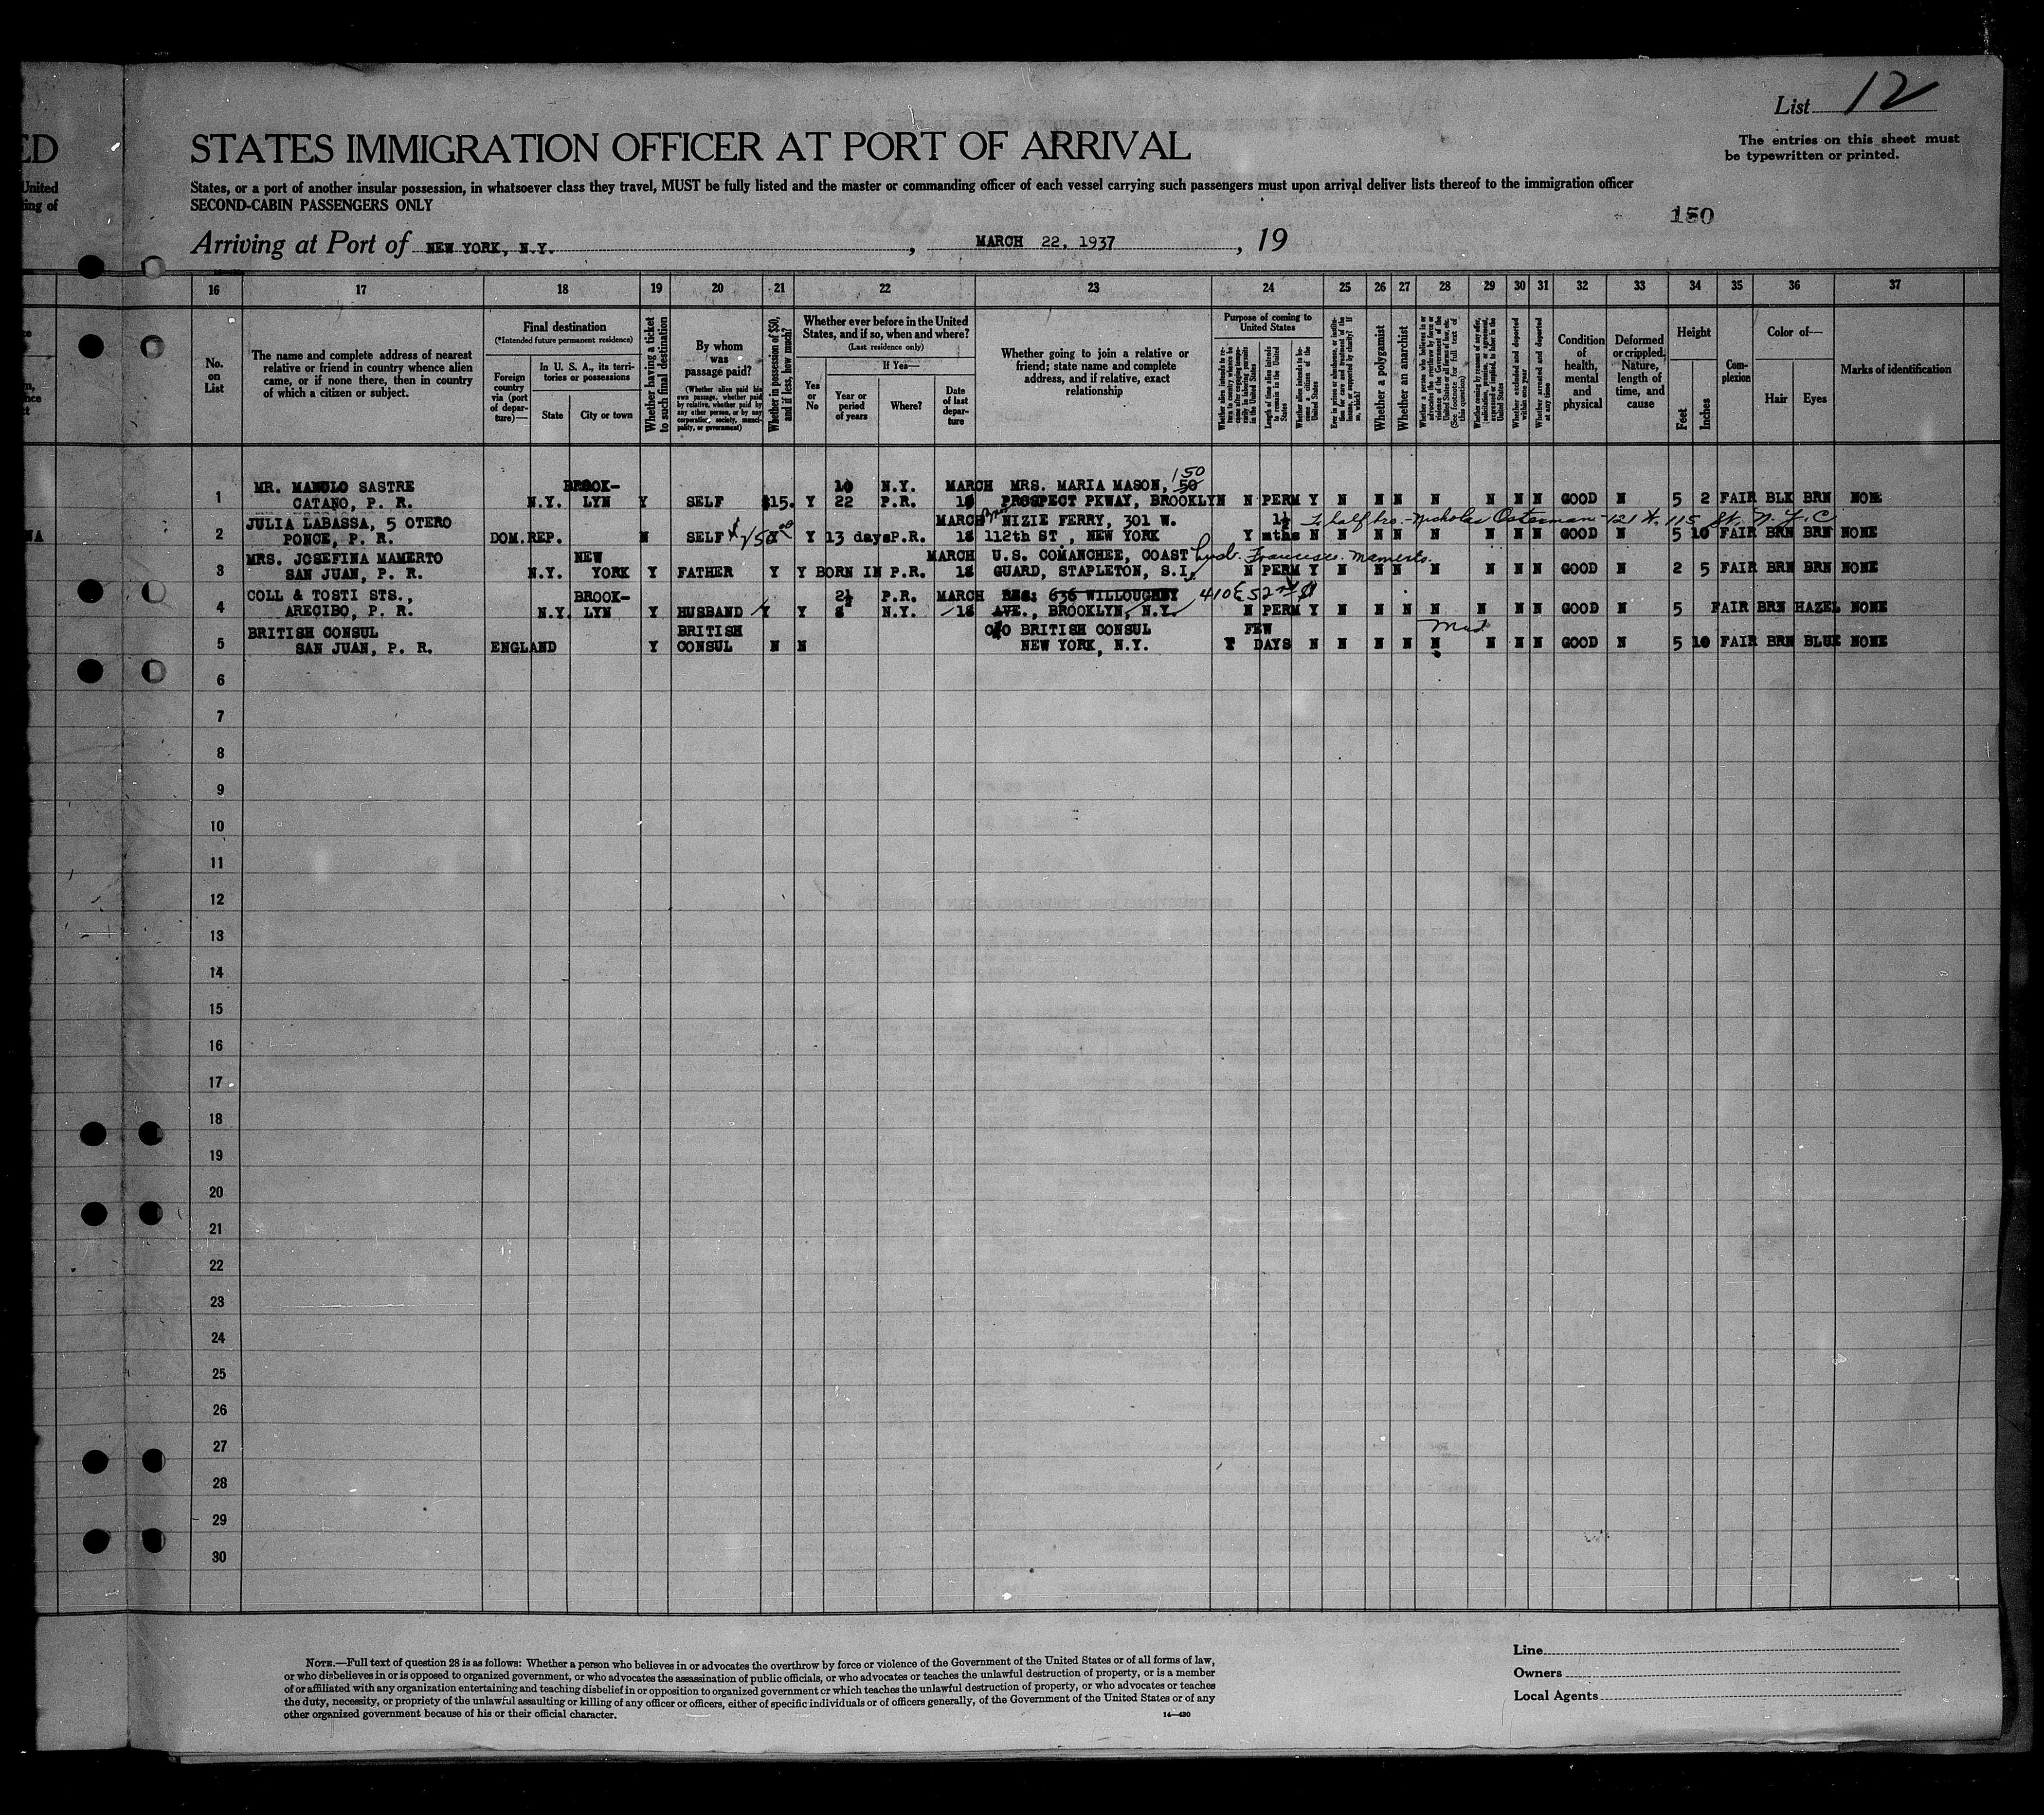 List 12
ED
STATES IMMIGRATION OFFICER AT PORT OF ARRIVAL
The entries on this sheet must
be typewritten or printed.
United
States, or a port of another insular possession, in whatsoever class they travel, MUST be fully listed and the master or commanding officer of each vessel carrying such passengers must upon arrival deliver lists thereof to the immigration officer
ing of
SECOND-CABIN PASSENGERS ONLY
150
Arriving at Port of NEW YORK, N.Y. , MARCH 22, 1937 , 19
16 17 18 19 20 21 22 23 24 25 26 27 28 29 30 31 32 33 34 35 36 37
No.
on
List
The name and complete address of nearest
relative or friend in country whence alien
came, or if none there, then in country
of which a citizen or subject.
Final destination
(*Intended future permanent residence)
Foreign
country
via (port
of depar-
ture)—
In U. S. A., its terri-
tories or possessions
State
City or town
Whether having a ticket
to such final destination
By whom
was
passage paid?
(Whether alien paid his
own passage, whether paid
by relative, whether paid by
any other person, or by any
corporation, society, munici-
pality, or government)
Whether in possession of $50,
and if less, how much?
Whether ever before in the United
States, and if so, when and where?
(Last residence only)
Yes
or
No
If Yes—
Year or
period
of years
Where?
Date
of last
depar-
ture
Whether going to join a relative or
friend; state name and complete
address, and if relative, exact
relationship
Purpose of coming to
United States
Length of time alien intends
to remain in the United
States
Whether alien intends to be-
come a citizen of the
United States
Whether a polygamist
Whether an anarchist
Whether excluded and deported
within one year
Whether arrested and deported
at any time
Condition
of
health,
mental
and
physical
Deformed
or crippled.
Nature,
length of
time, and
cause
Height
Feet
Inches
Com-
plexion
Color of—
Hair
Eyes
Marks of identification
MR. MANOLO SASTRE BROOK- 10 N.Y. MARCH MRS. MARIA MASON, 50 150
1 CATAÑO, P. R. N.Y. LYN Y SELF $15. Y 22 P.R. 18 PROSPECT PKWAY, BROOKLYN N PERM Y N N N N N N N GOOD N 5 2 FAIR BLK BRN NONE
JULIA LABASSA, 5 OTERO MARCH NIZIE FERRY, 301 W. 1½ half bro. - Nicholas Osterman - 121 W. 115 St. N.Y.C.
2 PONCE, P. R. DOM.REP. N SELF $150.00 Y Y 13 days P.R. 18 112th ST , NEW YORK Y mths N N N N N N N N GOOD N 5 10 FAIR BRN BRN NONE
MRS. JOSEFINA MAMERTO NEW MARCH U.S. COMANCHEE, COAST husb. Francisco Mamerto.
3 SAN JUAN, P. R. N.Y. YORK Y FATHER Y Y BORN IN P.R. 18 GUARD, STAPLETON, S.I. N PERM Y N N N N N N N GOOD N 2 5 FAIR BRN BRN NONE
COLL & TOSTI STS., BROOK- 2½ P.R. MARCH RES: 636 WILLOUGHBY 410 E 52nd St
4 ARECIBO, P. R. N.Y. LYN Y HUSBAND Y Y 8 N.Y. 18 AVE., BROOKLYN, N.Y. N PERM Y N N N N N N N GOOD N 5 FAIR BRN HAZEL NONE
BRITISH CONSUL BRITISH C/O BRITISH CONSUL FEW
5 SAN JUAN, P. R. ENGLAND Y CONSUL N N NEW YORK, N.Y. Y DAYS N N N N N N N N GOOD N 5 10 FAIR BRN BLUE NONE
6
7
8
9
10
11
12
13
14
15
16
17
18
19
20
21
22
23
24
25
26
27
28
29
30
NOTE.—Full text of question 28 is as follows: Whether a person who believes in or advocates the overthrow by force or violence of the Government of the United States or of all forms of law,
or who disbelieves in or is opposed to organized government, or who advocates the assassination of public officials, or who advocates or teaches the unlawful destruction of property, or is a member
of or affiliated with any organization entertaining and teaching disbelief in or opposition to organized government or which teaches the unlawful destruction of property, or who advocates or teaches
the duty, necessity, or propriety of the unlawful assaulting or killing of any officer or officers, either of specific individuals or of officers generally, of the Government of the United States or of any
other organized government because of his or their official character.
14—430
Line
Owners
Local Agents